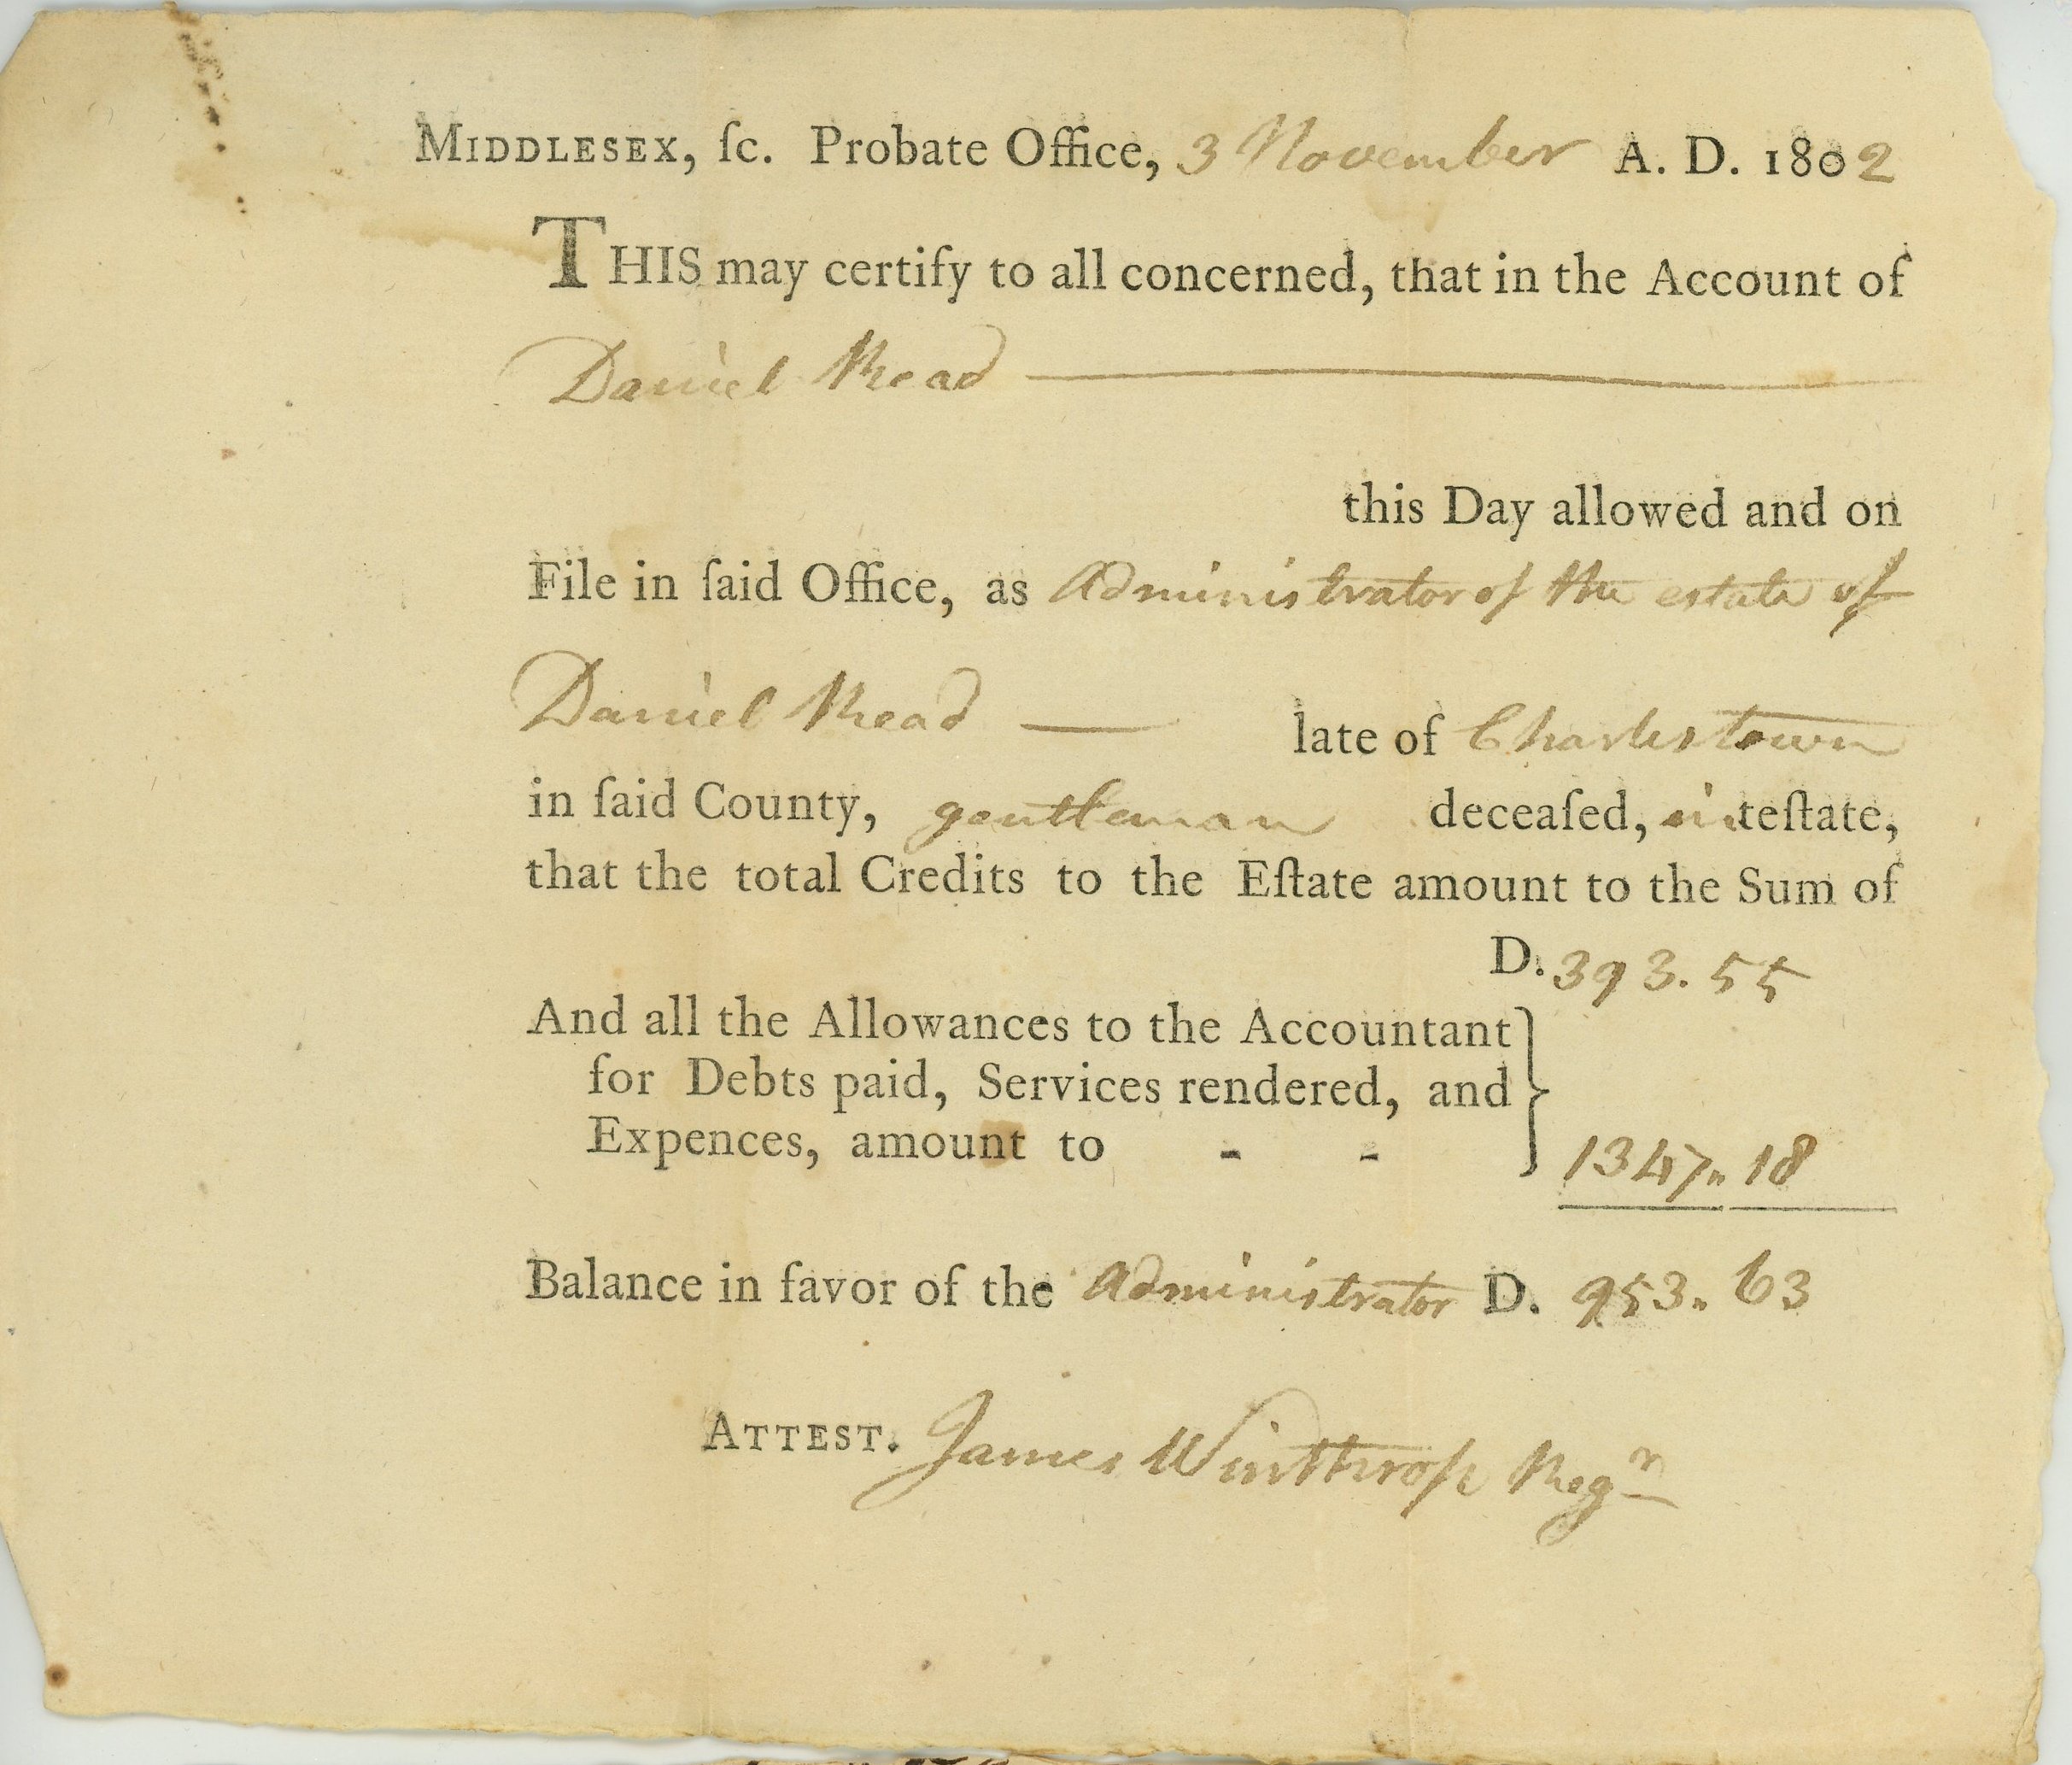 MIDDLESEX, ſc. Probate Office, 3 November A. D. 1802
THIS may certify to all concerned, that in the Account of
Daniel Read
this Day allowed and on
File in ſaid Office, as Administrator of the estate of
Daniel Read — late of Charlestown
in ſaid County, gentleman deceaſed, inteſtate,
that the total Credits to the Eſtate amount to the Sum of
D. 393. 55
And all the Allowances to the Accountant
for Debts paid, Services rendered, and
Expences, amount to - - 1347.. 18
Balance in favor of the Administrator D. 953.. 63
ATTEST. James Winthrop Regr